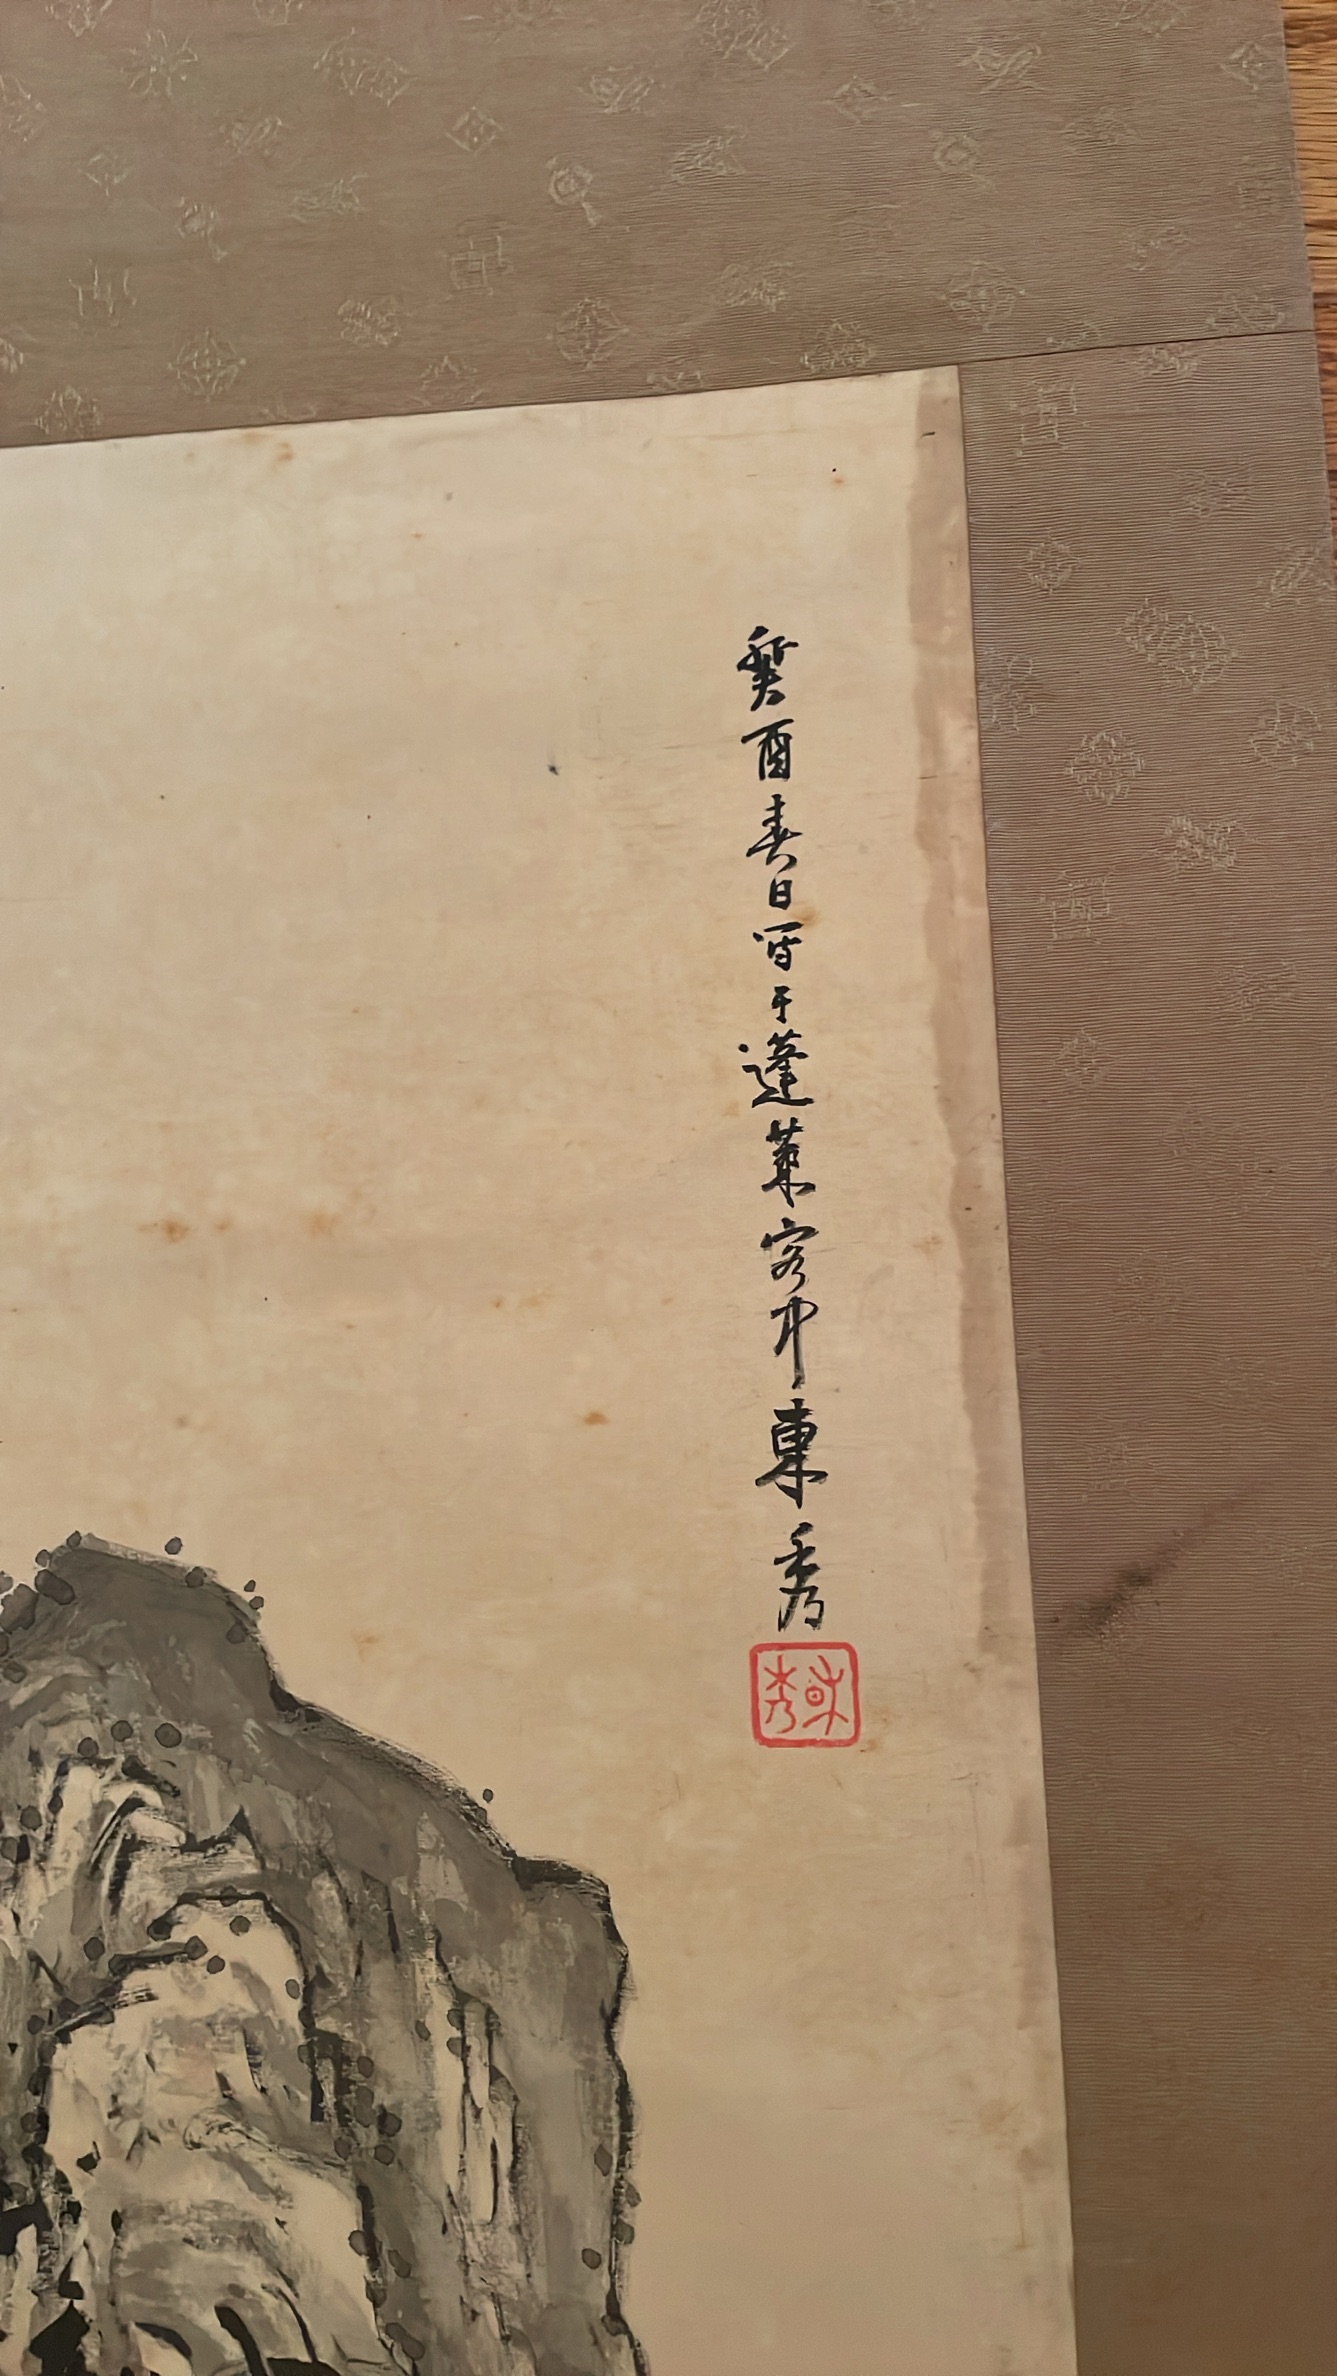 癸酉春日写于蓬萊客中東秀
東秀